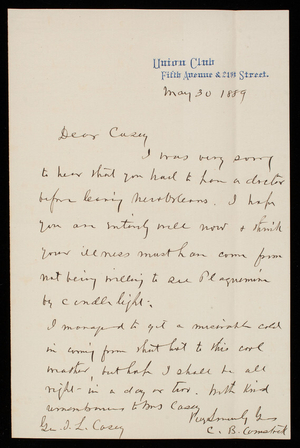 Union Club
Fifth Avenue & 21st Street.
May 30 1889
Dear Casey
I was very sorry
to hear that you had to have a doctor
before leaving New Orleans. I hope
you are entirely well now & think
your illness must have come from
not being willing to see Plaquemine
by candle light.
I managed to get a miserable cold
in coming from that hot to this cool
weather, but hope I shall be all
right in a day or two. With kind
remembrances to Mrs Casey
Very Sincerely Yrs
C. B. Comstock
Gen. T. L. Casey